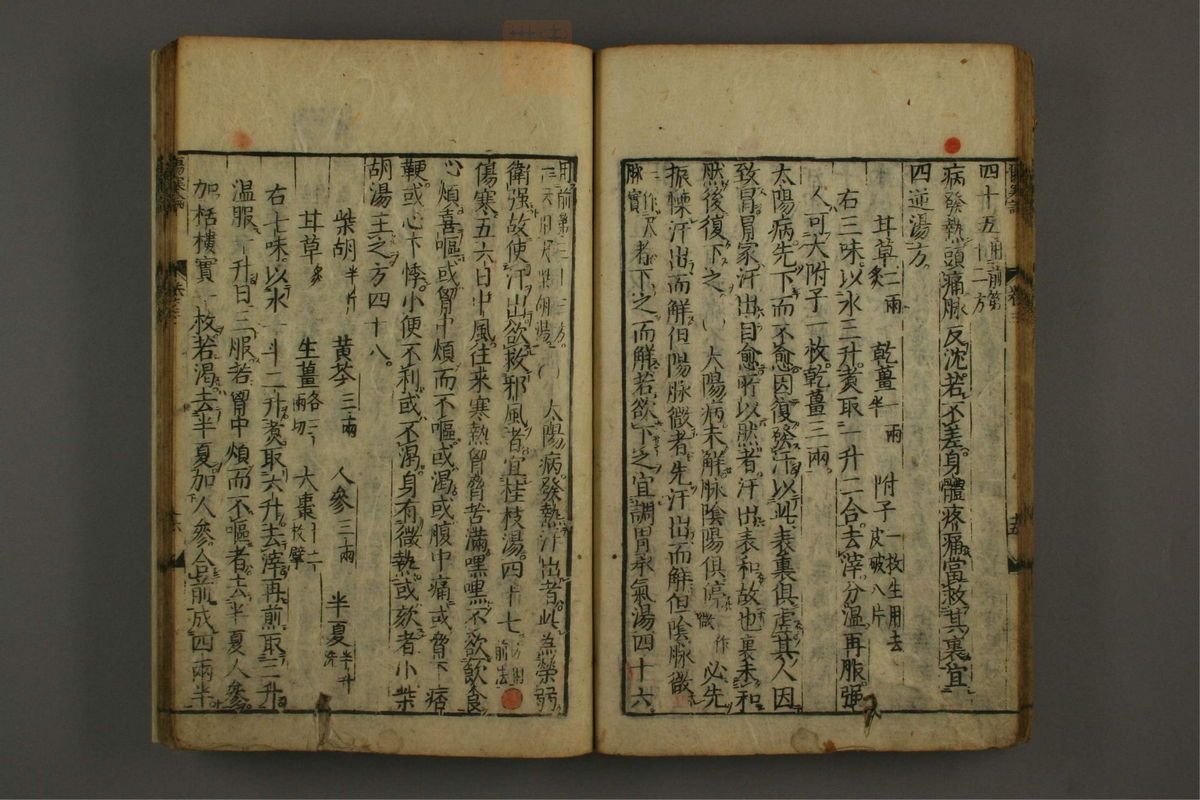 四十五用前第十二方
病發熱頭痛脉反沈若不差身體疼痛當救其裏宜
四逆湯方
甘草二兩炙 乾薑一兩半 附子一枚生用去皮破八片
右三味以水三升煑取一升二合去滓分温再服强
人可大附子一枚乾薑三兩
太陽病先下而不愈因復發汗以此表裏俱虛其人因
致冒冒家汗出自愈所以然者汗出表和故也裏未和
然後復下之 太陽病未解脉陰陽俱停一作微必先
振慄汗出而解但陽脉微者先汗出而解但陰脉微
一作尺脉實者下之而解若欲下之宜調胃承氣湯四十六
用前第三十三方 太陽病發熱汗出者此為榮弱
衛强故使汗出欲救邪風者宜桂枝湯四十七方用前法
傷寒五六日中風往来寒熱胷脅苦滿嘿嘿不欲飲食
心煩喜嘔或胷中煩而不嘔或渴或腹中痛或脅下痞
鞕或心下悸小便不利或不渴身有微熱或欬者小柴
胡湯主之方四十八
柴胡半斤 黄芩三兩 人參三兩 半夏半升洗
甘草炙 生薑各三兩切 大棗十二枚擘
右七味以水一斗二升煑取六升去滓再煎取三升
温服一升日三服若胷中煩而不嘔者去半夏人參
加栝樓實一枚若渴去半夏加人參合前成四兩半
傷寒論